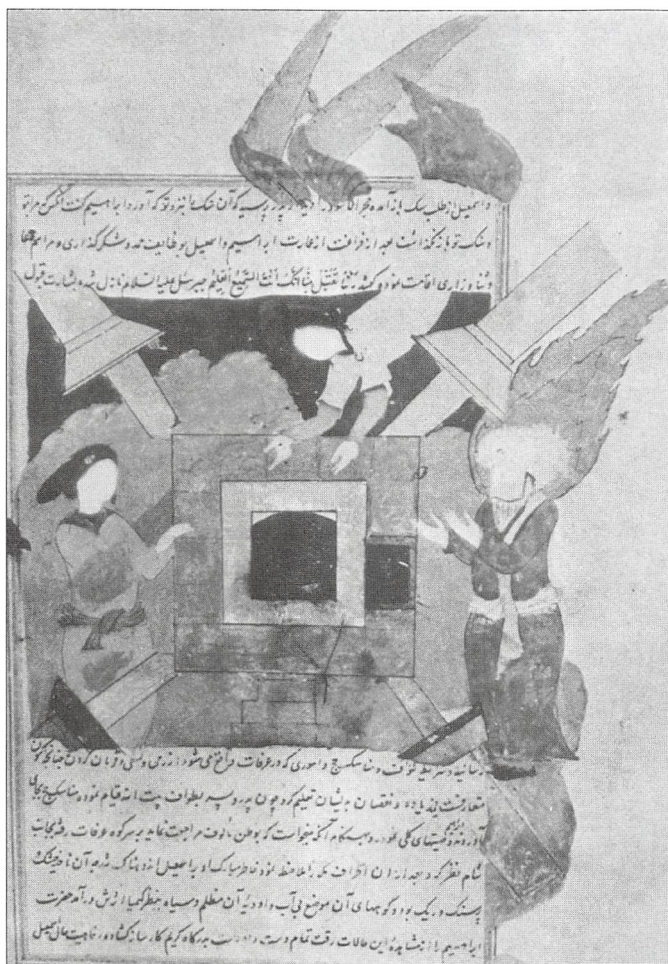 و اسمعیل از طلب سنک باز آمده حجر الاسود را دید از پدر پرسید که آن سنک را نزد تو که آورد ابراهیم گفت آنکس که مرا بتو
و سنک تو باز نگذاشت بعد از فراغت از عمارت ابراهیم و اسمعیل بوظایف حمد و شکر گذاری و مراسم دعا
و ثنا و زاری اقامت نموده گفتند ربنا تقبل منا انک انت السمیع العلیم جبرئیل علیه السلام نازل شده بشارت قبول
رسانید و شرایط طواف و مناسک حج و اموری که در عرفات واقع می شود از رمی و سعی و قربان کردن چنانچه اکنون
متعارفست بی زیاده و نقصان بدیشان تعلیم کرد چون پدر و پسر بطواف بیت الله قیام نموده مناسک حج بجای
آوردند ابراهیم وصیتهای کلی نمود و هنگام آنکه میخواست که بوطن مألوف مراجعت نماید بر سر کوه عرفات رفته بجانب
شام نظر کرد و بعد از آن اطراف مکه را ملاحظه نمود خاطر مبارک او بر اسمعیل اندوهناک شد چه آن ناحیه خشک
پر سنک و ریک بود و کوههای آن موضع بی آب و اودیه آن مظلم و سیاه بنظر کیمیا اثرش در آمد حضرت
ابراهیم را از مشاهده این حالات رقت تمام دست داد و دست بدرگاه کریم کارساز گشاده رفاهیت حال اسمعیل